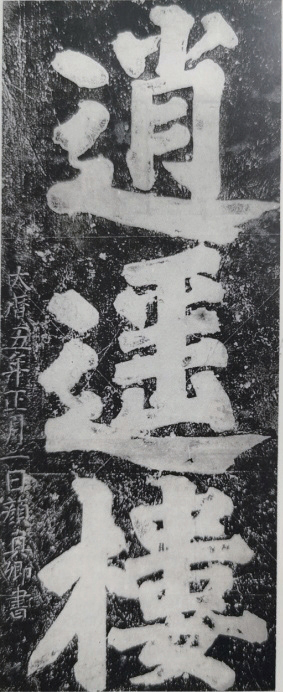 逍遥樓
大曆五年正月一日顔真卿書